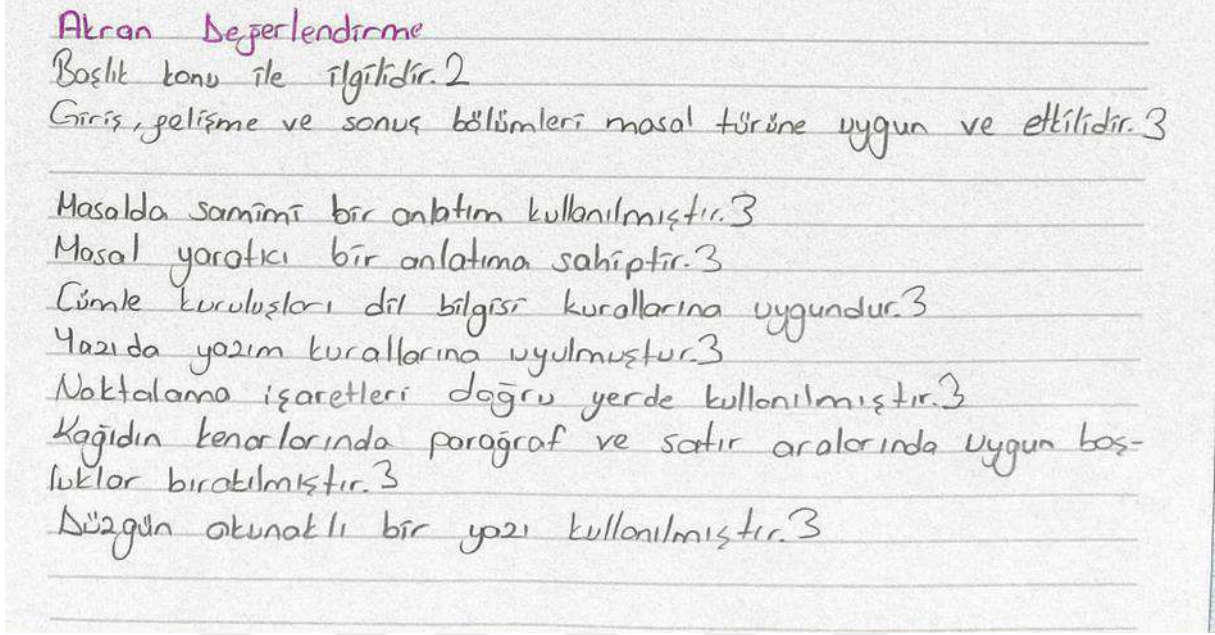 Akran Değerlendirme
Başlık konu ile ilgilidir. 2
Giriş, gelişme ve sonuç bölümleri masal türüne uygun ve etkilidir. 3
Masalda samimi bir anlatım kullanılmıştır. 3
Masal yaratıcı bir anlatıma sahiptir. 3
Cümle kuruluşları dil bilgisi kurallarına uygundur. 3
Yazıda yazım kurallarına uyulmuştur. 3
Noktalama işaretleri doğru yerde kullanılmıştır. 3
Kağıdın kenarlarında parağraf ve satır aralarında uygun boş-
luklar bırakılmıştır. 3
Düzgün okunaklı bir yazı kullanılmıştır. 3